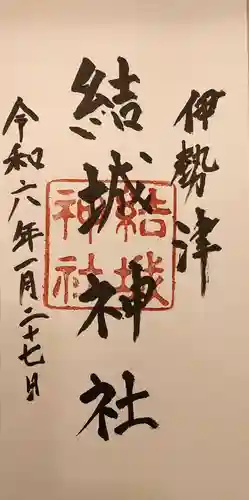 伊勢津
結城神社
結城神社
令和六年一月二十七日